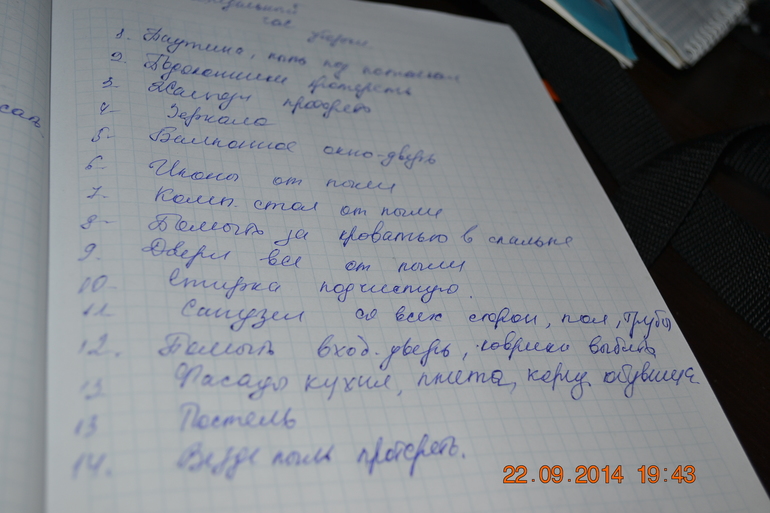 час
1. Паутина, пыль под потолком
2. Подоконники протереть
3 Жалюзи протереть
4- Зеркало
5- Балконное окно-дверь
6- Иконы от пыли
7- Комп. стол от пыли
8- Помыть за кроватью в спальне
9. Двери все от пыли
10- Стирка подчистую.
11 Санузел со всех сторон, пол, трубы
12. Помыть вход. дверь, коврики выбить
13 Фасады кухни, плита, обувница
13 Постель
14. Везде пыль протереть.
22.09.2014 19:43